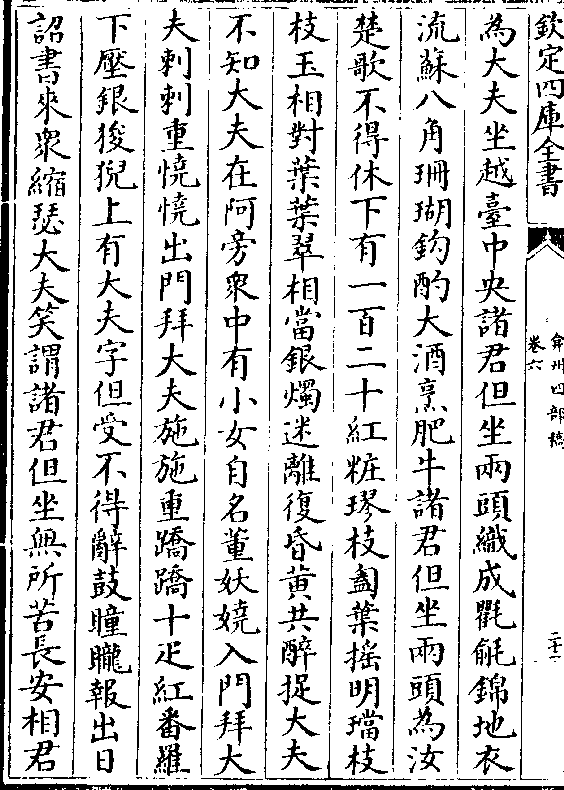 欽定四庫全書
弇州四部稿
卷六
二十一
為大夫坐越臺中央諸君但坐兩頭織成氍毹錦地衣
流蘇八角珊瑚鈎酌大酒烹肥牛諸君但坐兩頭為汝
楚歌不得休下有一百二十紅粧璆枝匎葉摇明璫枝
枝玉相對葉葉翠相當銀燭迷離復昏黄共醉捉大夫
不知大夫在阿旁衆中有小女自名董妖嬈入門拜大
夫刺刺重憢憢出門拜大夫施施重蹻蹻十疋紅番羅
下壓銀狻猊上有大夫字但受不得辭鼓瞳曨報出日
詔書來衆縮瑟大夫笑謂諸君但坐無所苦長安相君